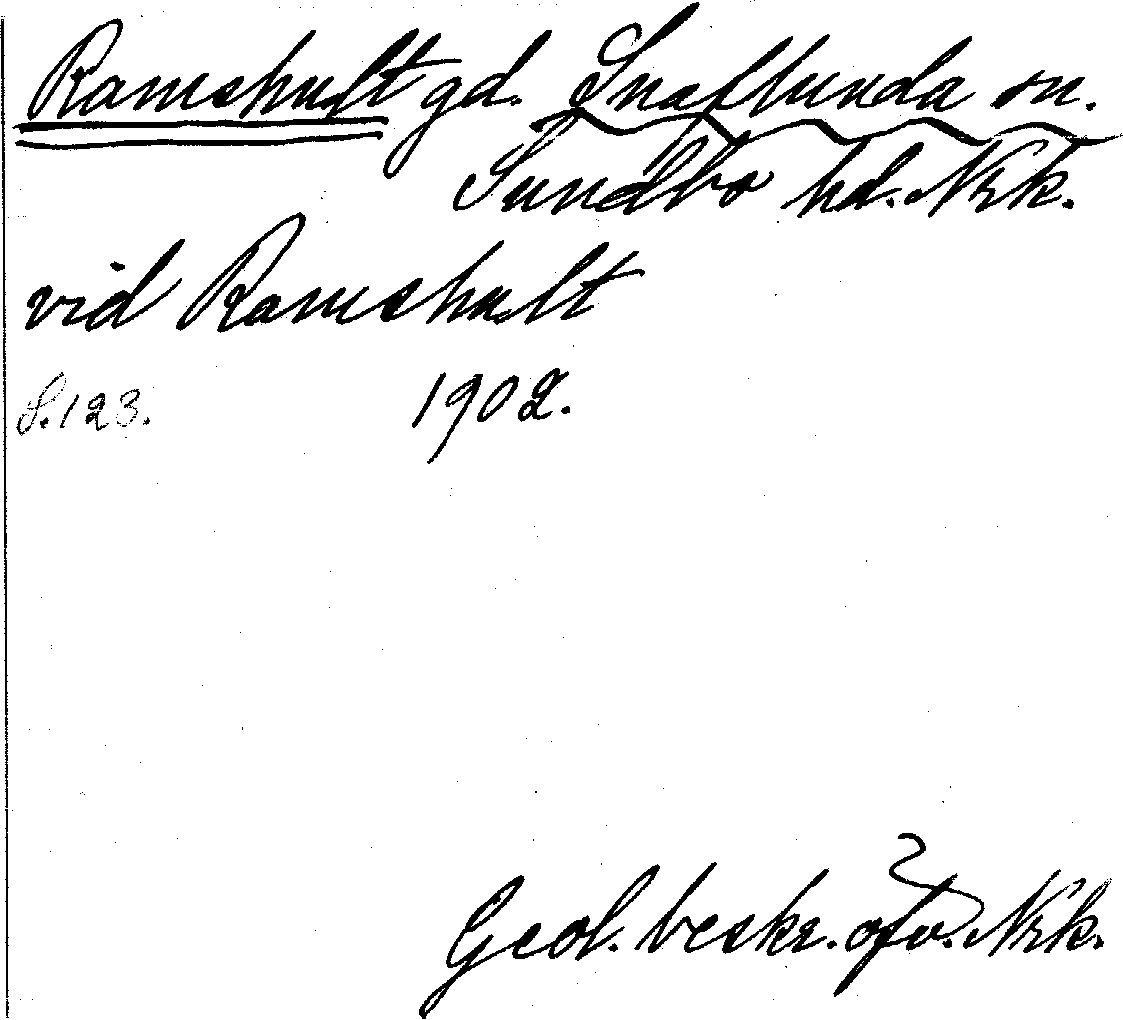 Ramshult gd. Snaflunda sn.
Sundbo hd. Nrk.
vid Ramshult
S. 123. 1902.
Geol. beskr. öfv. Nrk.